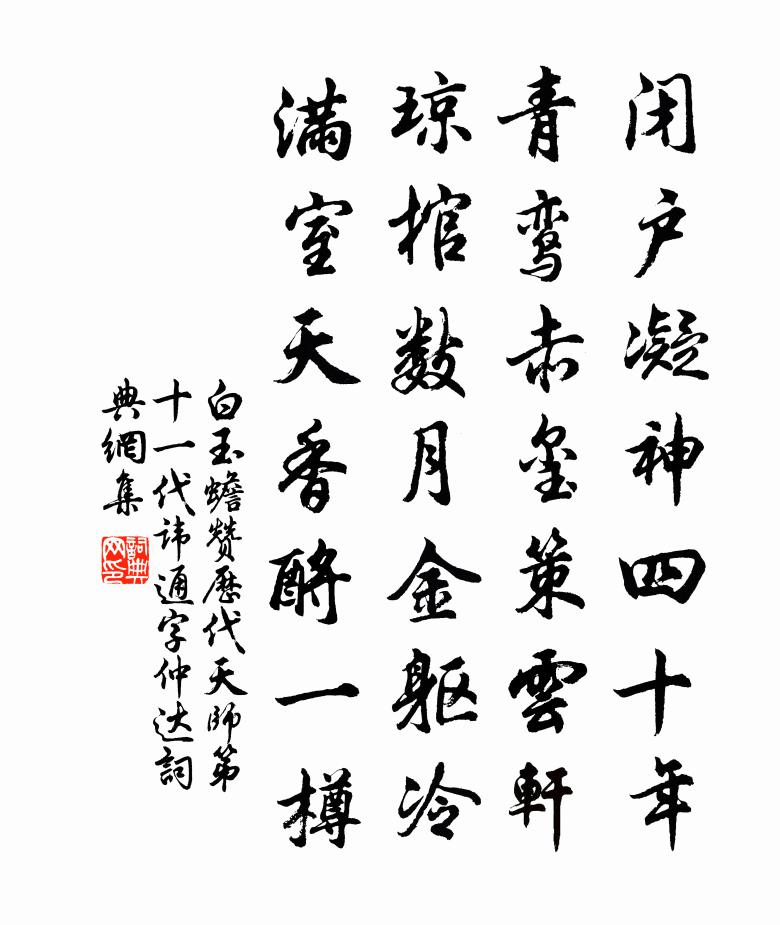 闭户凝神四十年
青鸾赤玺策雲軒
琼棺数月金躯冷
滿室天香酹一樽
白玉蟾赞歷代天師第
十一代諱通字仲达詞
典網集
詞典网印